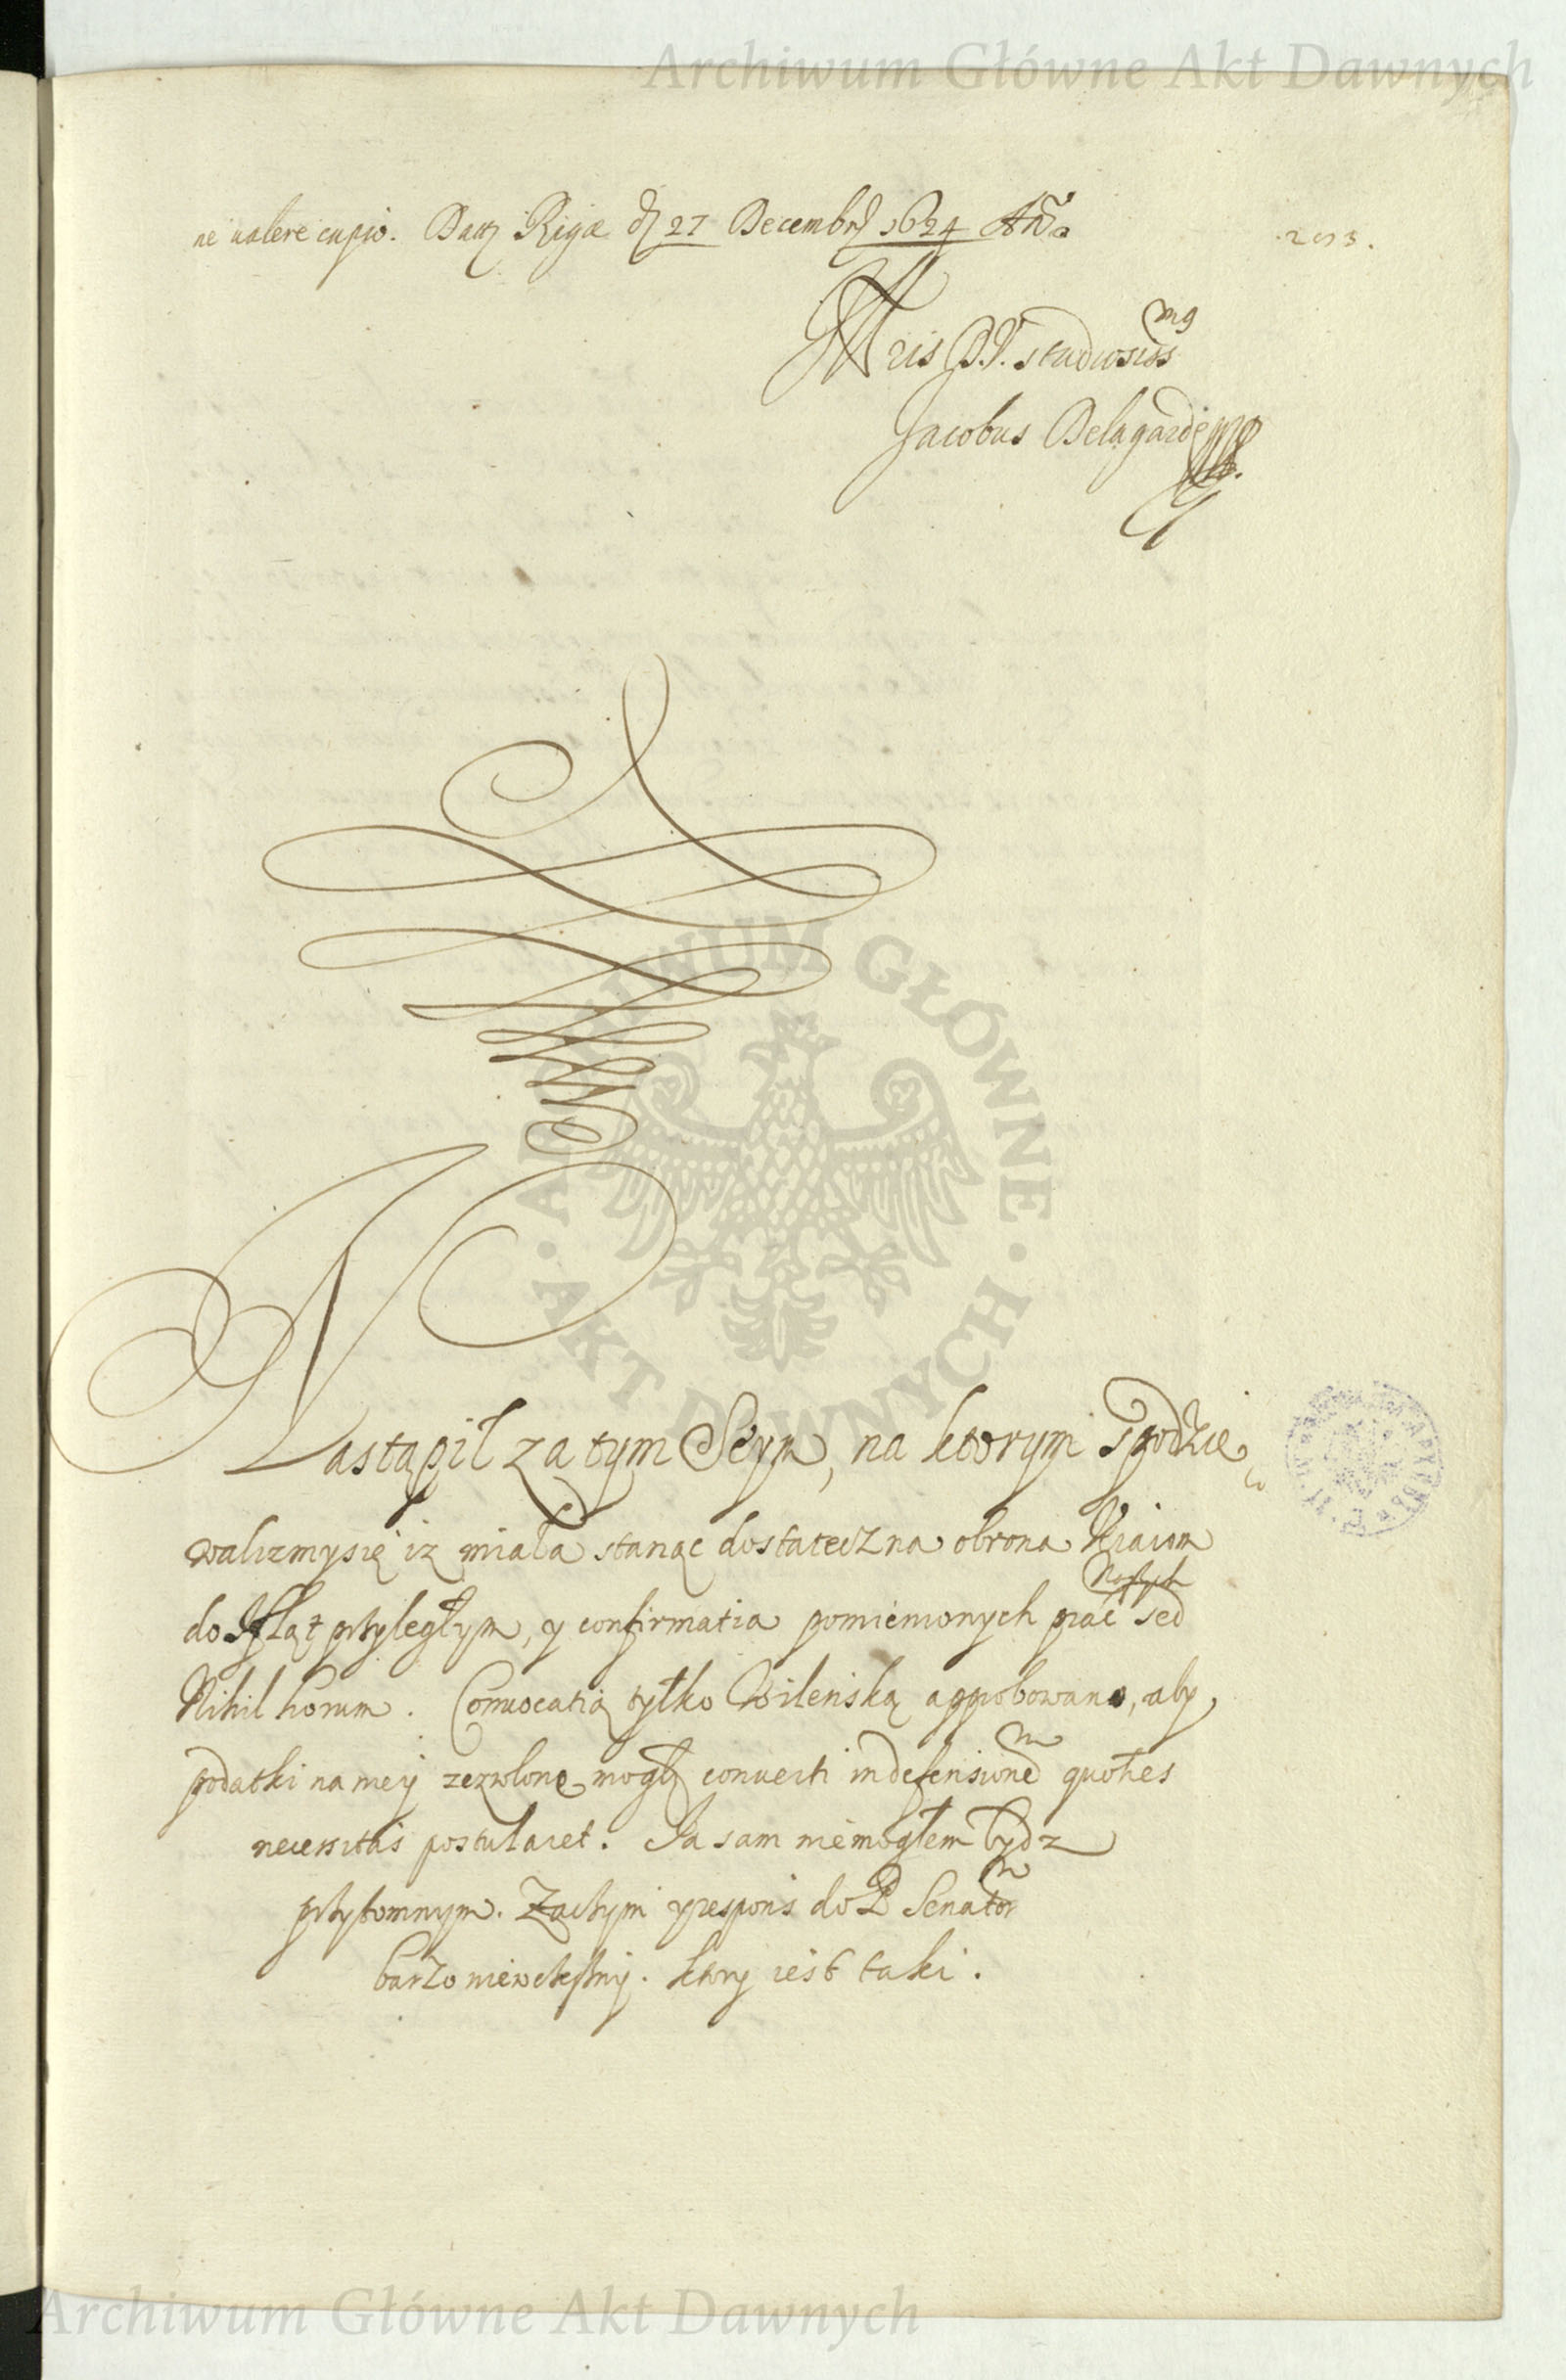 Archiwum Główne Akt Dawnych
ne valere cupio. Datȝ Rigæ d 27 Decembr 1624 Año
.203.
Vris P.V. studiosiss
mg
Jacobus Delagardie
ARCHIWUM GŁÓWNE · AKT DAWNYCH ·
Nastąpił za tym Seym, na ktorym spodzie
walizmysię iz miała stanąc dostateczna obrona Kraiom
do Ifląt przyległym, y confirmatia pomienionych prac
Naszych
sed
Nihil horum. Convocatią tylko Wileńską approbowano, aby
podatki na niey zezwolone mogły converti in defensionem quoties
necessitas postularet. Ja sam niemogłem bydz
przytomnym. Zaczym y respons do P Senator
barzo niewczesny. ktory iest taki.
Archiwum Główne Akt Dawnych